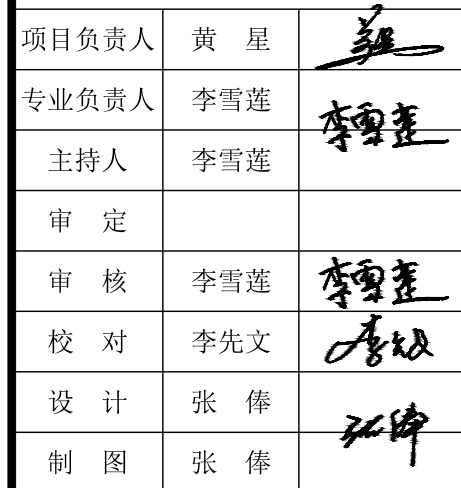 项目负责人 黄 星
专业负责人 李雪莲 李雪莲
主持人 李雪莲
审 定
审 核 李雪莲 李雪莲
校 对 李先文 李先文
设 计 张 俸 张俸
制 图 张 俸